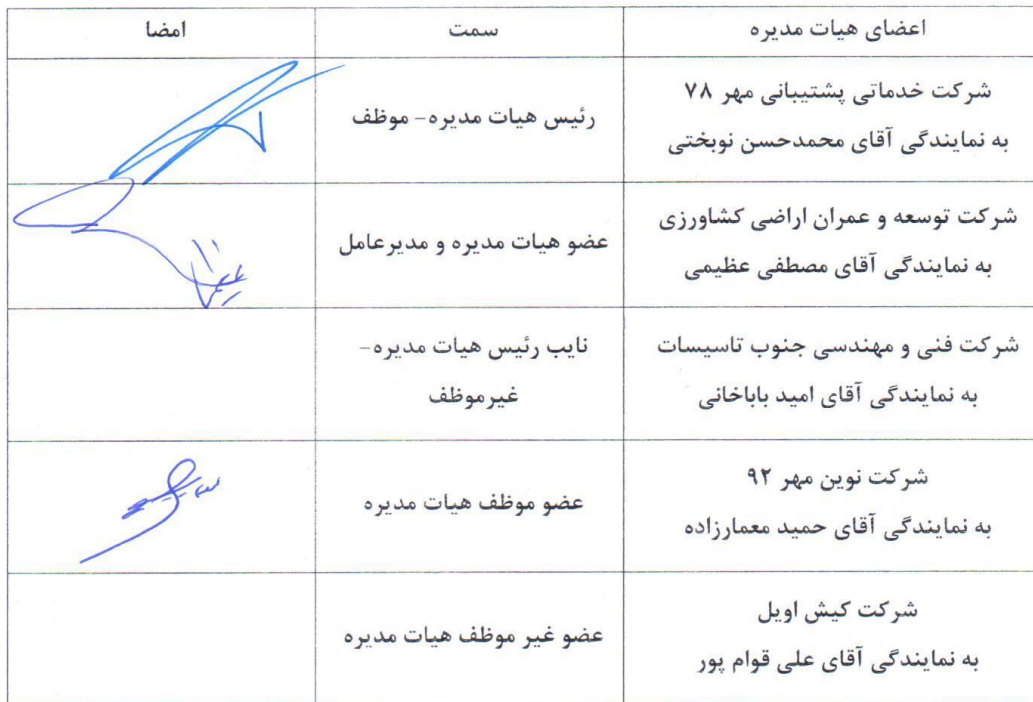 اعضای هیات مدیره
سمت
امضا
شرکت خدماتی پشتیبانی مهر ۷۸
به نمایندگی آقای محمدحسن نوبختی
رئیس هیات مدیره- موظف
شرکت توسعه و عمران اراضی کشاورزی
به نمایندگی آقای مصطفی عظیمی
عضو هیات مدیره و مدیرعامل
شرکت فنی و مهندسی جنوب تاسیسات
به نمایندگی آقای امید باباخانی
نایب رئیس هیات مدیره-
غیرموظف
شرکت نوین مهر ۹۲
به نمایندگی آقای حمید معمارزاده
عضو موظف هیات مدیره
شرکت کیش اویل
به نمایندگی آقای علی قوام پور
عضو غیر موظف هیات مدیره